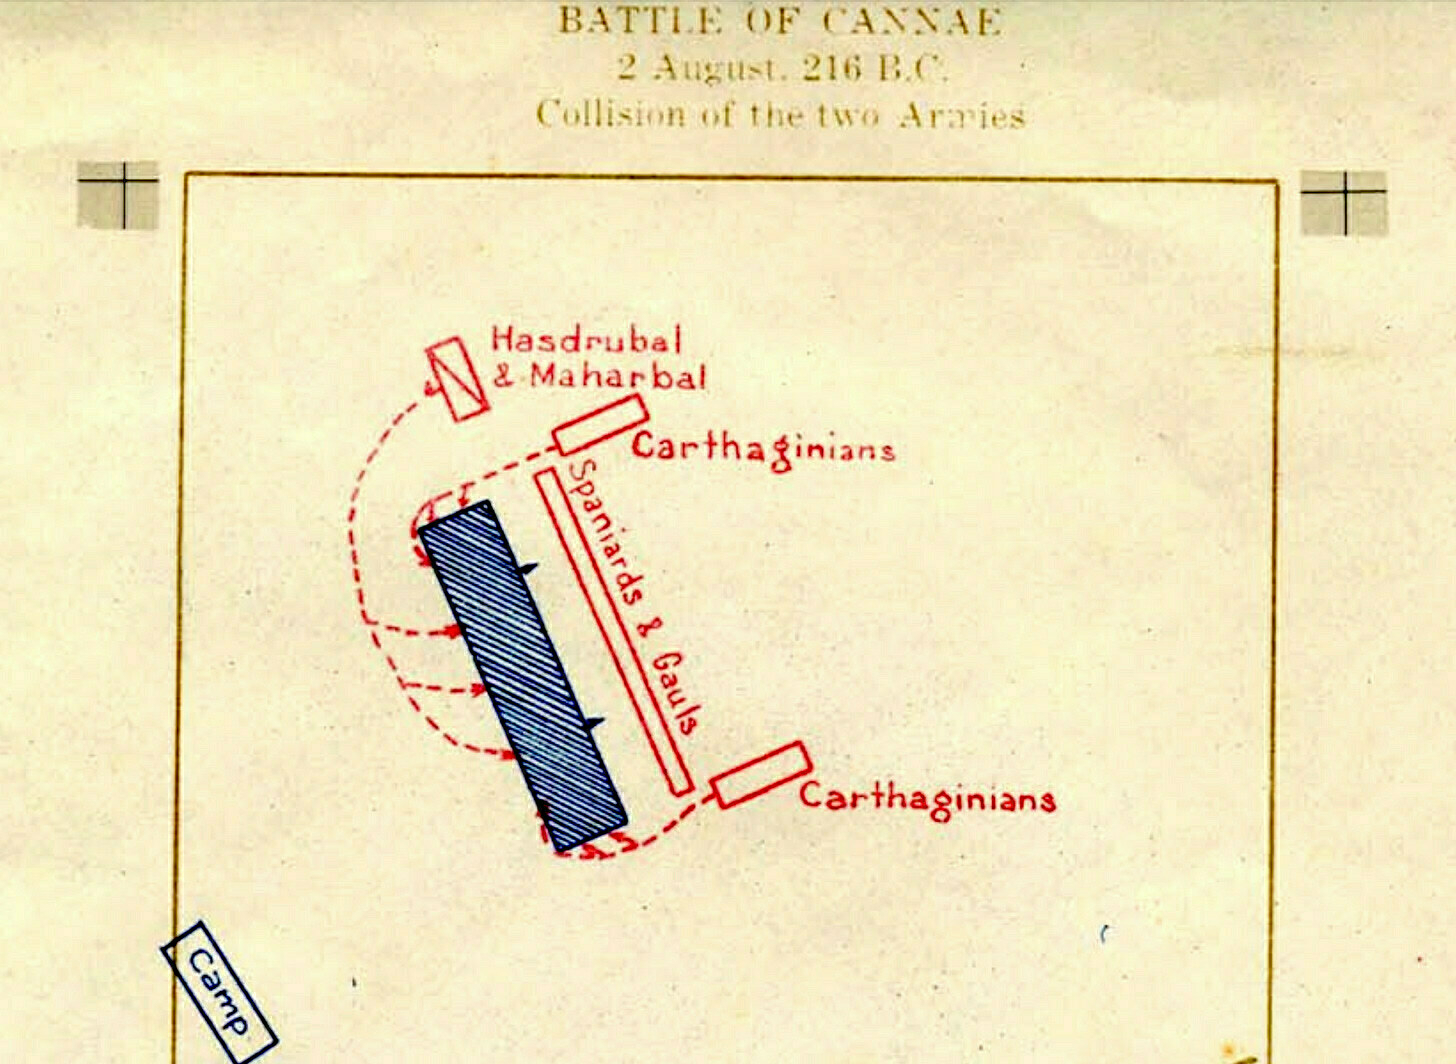 BATTLE OF CANNAE
2 August. 216 B.C.
Collision of the two Armies
Hasdrubal
& Maharbal
Carthaginians
Spaniards & Gauls
Carthaginians
Camp